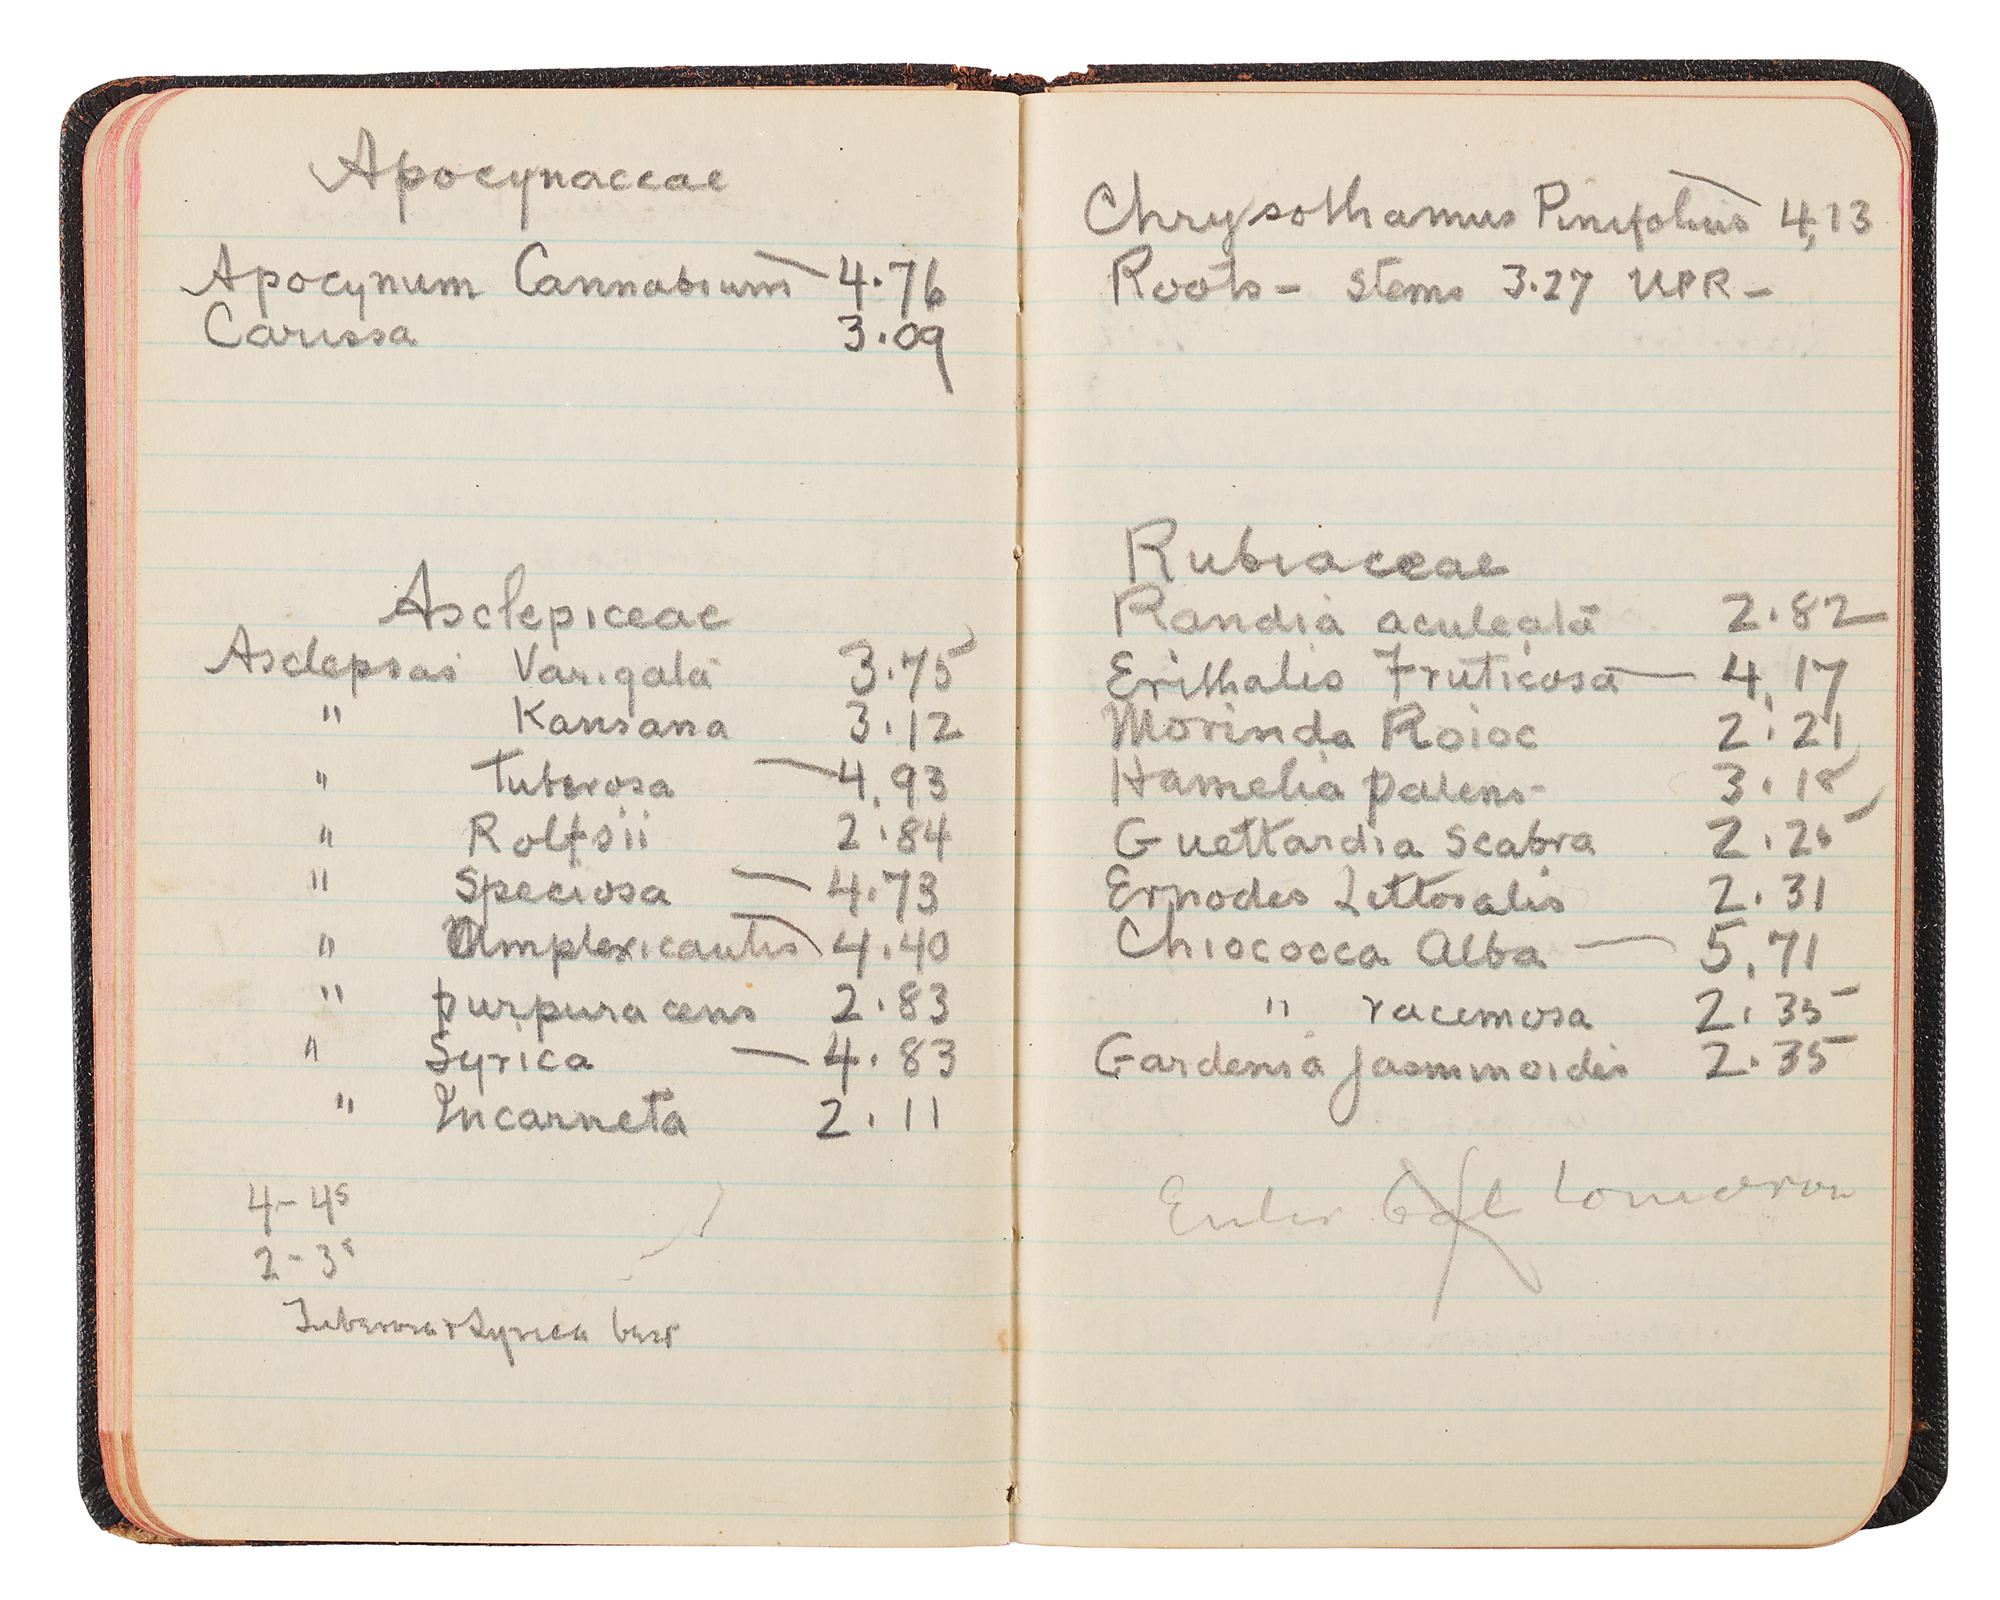 Apocynaceae
Apocynum Cannabium — 4.76
Carissa 3.09
Asclepiceae
Asclepsas Varigata 3.75
" Kansana 3.12
" Tuberosa — 4.93
" Rolfsii 2.84
" Speciosa — 4.73
" Amplexicaulis 4.40
" purpuracens 2.83
" Syrica — 4.83
" Incarneta 2.11
4 - 4s
2 - 3s
Tuberosa + Syrica best
Chrysothamus Pinifolius 4.13
Roots - Stems 3.27 UPR -
Rubiaceae
Randia aculeata 2.82
Erithalis Fruticosa — 4.17
Morinda Roioc 2.21
Hamelia patens - 3.18
Guettardia Scabra 2.25
Ernodes Littoralis 2.31
Chiococca Alba — 5.71
" racemosa 2.35
Gardenia jasminoides 2.35